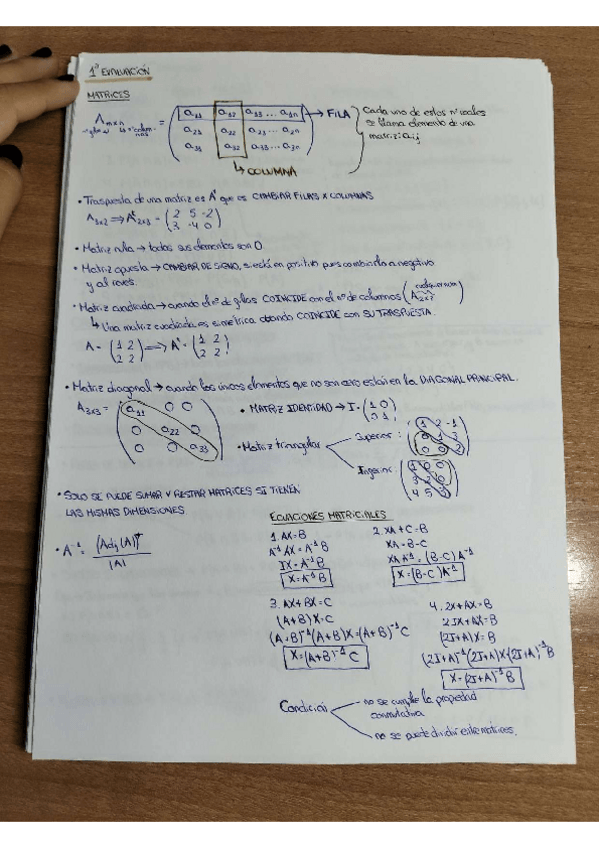 1ª EVALUACIÓN
MATRICES
A m×n = ( a11 a12 a13 ... a1n → FILA
a21 a22 a23 ... a2n
a31 a32 a33 ... a3n )
↳ COLUMNA
Cada uno de estos nº reales
se llama elemento de una
matriz: aij
• Traspuesta de una matriz es Aᵗ que es CAMBIAR FILAS X COLUMNAS
A3x2 ⇒ Aᵗ2x3 = ( 2 5 -2
3 -4 0 )
• Matriz nula → todos sus elementos son 0.
• Matriz opuesta → CAMBIAR DE SIGNO, si está en positivo pues cambiarlo a negativo
y al revés.
• Matriz cuadrada → cuando el nº de filas COINCIDE con el nº de columnas (A2x2)
↳ Una matriz cuadrada es simétrica cuando COINCIDE con SU TRASPUESTA.
A = ( 1 2 ⇒ Aᵗ = ( 1 2
2 2 ) 2 2 )
• Matriz diagonal → cuando los únicos elementos que no son cero están en la DIAGONAL PRINCIPAL.
A3x3 = ( a11 0 0
0 a22 0
0 0 a33 )
• MATRIZ IDENTIDAD → I = ( 1 0
0 1 )
• Matriz triangular
Superior: ( 1 2 -1
0 1 3
0 0 2 )
Inferior: ( 1 0 0
3 2 0
4 5 )
• SOLO SE PUEDE SUMAR Y RESTAR MATRICES SI TIENEN
LAS MISMAS DIMENSIONES
• A⁻¹ = (Adj(A))ᵗ
|A|
ECUACIONES MATRICIALES
1. AX=B
A⁻¹AX = A⁻¹B
IX = A⁻¹B
X = A⁻¹B
2. XA+C=B
XA = B-C
XAA⁻¹ = (B-C)A⁻¹
X = (B-C)A⁻¹
3. AX+BX=C
(A+B)X=C
(A+B)⁻¹(A+B)X=(A+B)⁻¹C
X=(A+B)⁻¹C
4. 2X+AX=B
2IX+AX=B
(2I+A)X=B
(2I+A)⁻¹(2I+A)X=(2I+A)⁻¹B
X=(2I+A)⁻¹B
no se cumple la propiedad
conmutativa
no se puede dividir entre matrices.